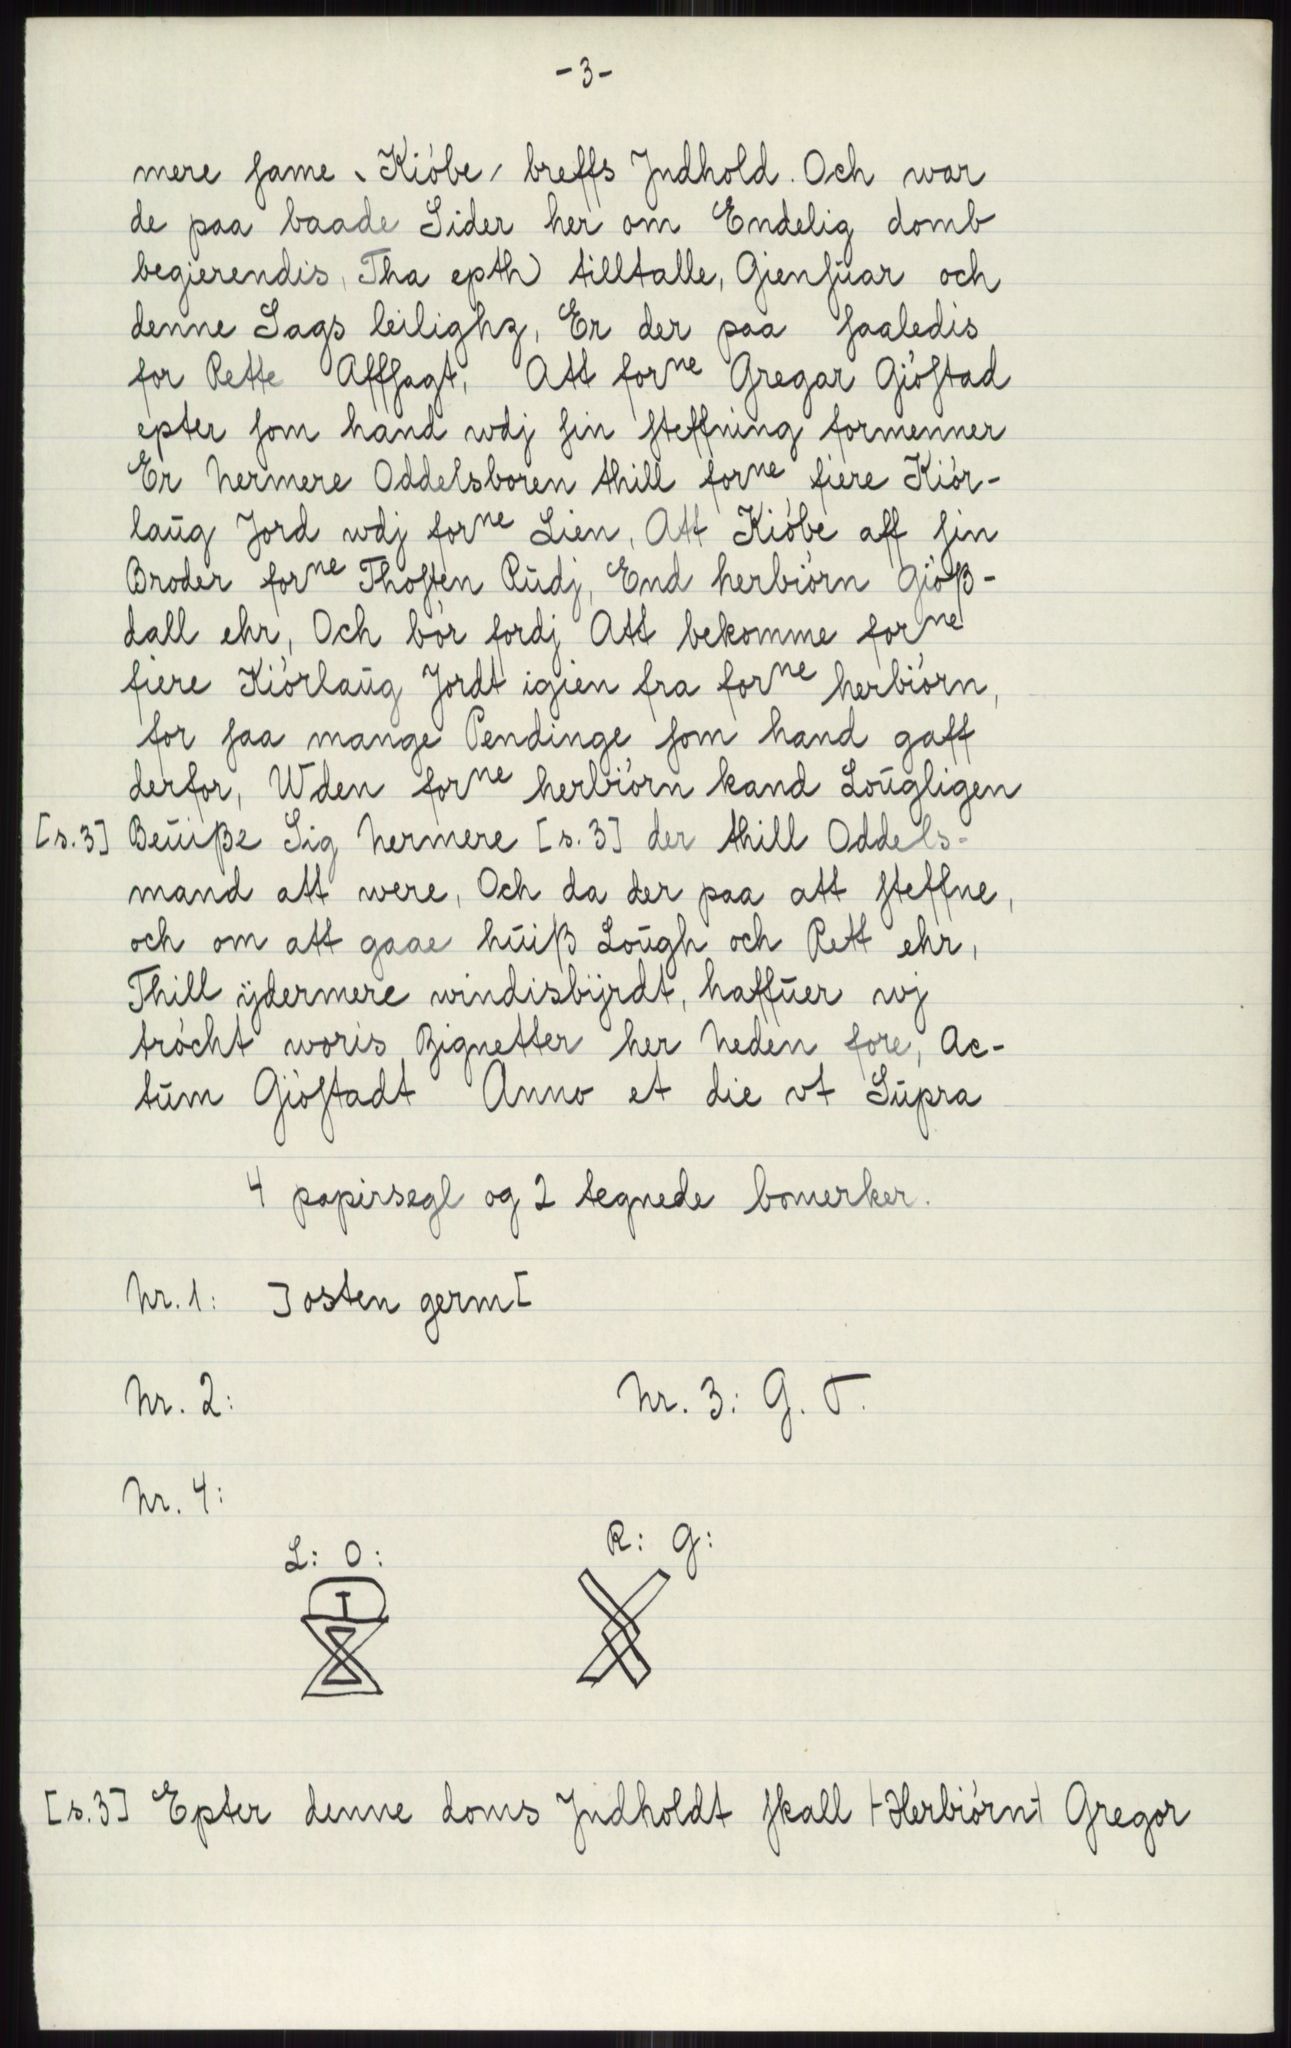 -3-
mere same, Kiøbe, breffs Jndhold. Och war
de paa baade Sider her om Endelig domb
begierendis, Tha epth) tilltalle, Giensūar och
denne Sags leilighz, Er der paa saaledis
for Rette Affsagt, Att forne Gregar Giøstad
epter som hand wdj sin steffning formenner
Er Nermere Oddelsboren thill forne fiere Kiør-
laūg Jord wdj forne Lien, Att Kiøbe aff sin
Broder forne Thosten Rūdj, End herbiørn Giøß-
dall ehr, Och bør fordj Att bekomme forne
fiere Kiørlaūg Jordt igien fra forne herbiørn,
for saa mange Pendinge som hand gaff
derfor, Wden forne herbiørn kand Loūgligen
[s.3] Beūiße Sig Nermere [s.3] der thill Oddels-
mand att were, Och da der paa att steffne,
och om att gaae hūiß Loūgh och Rett ehr,
Thill ÿdermere windisbÿrdt, haffūer wj
trøcht woris Zignetter her Neden fore, Ac-
tūm Giøstadt Anno et die vt Sūpra
4 papirsegl og 2 tegnede bomerker.
Nr. 1: ]osten germ[
Nr. 2: Nr. 3: G. T.
Nr. 4:
L: O: R: G:
[s.3] Epter denne doms Jndholdt skall ⊢Herbiørn⊣ Gregor